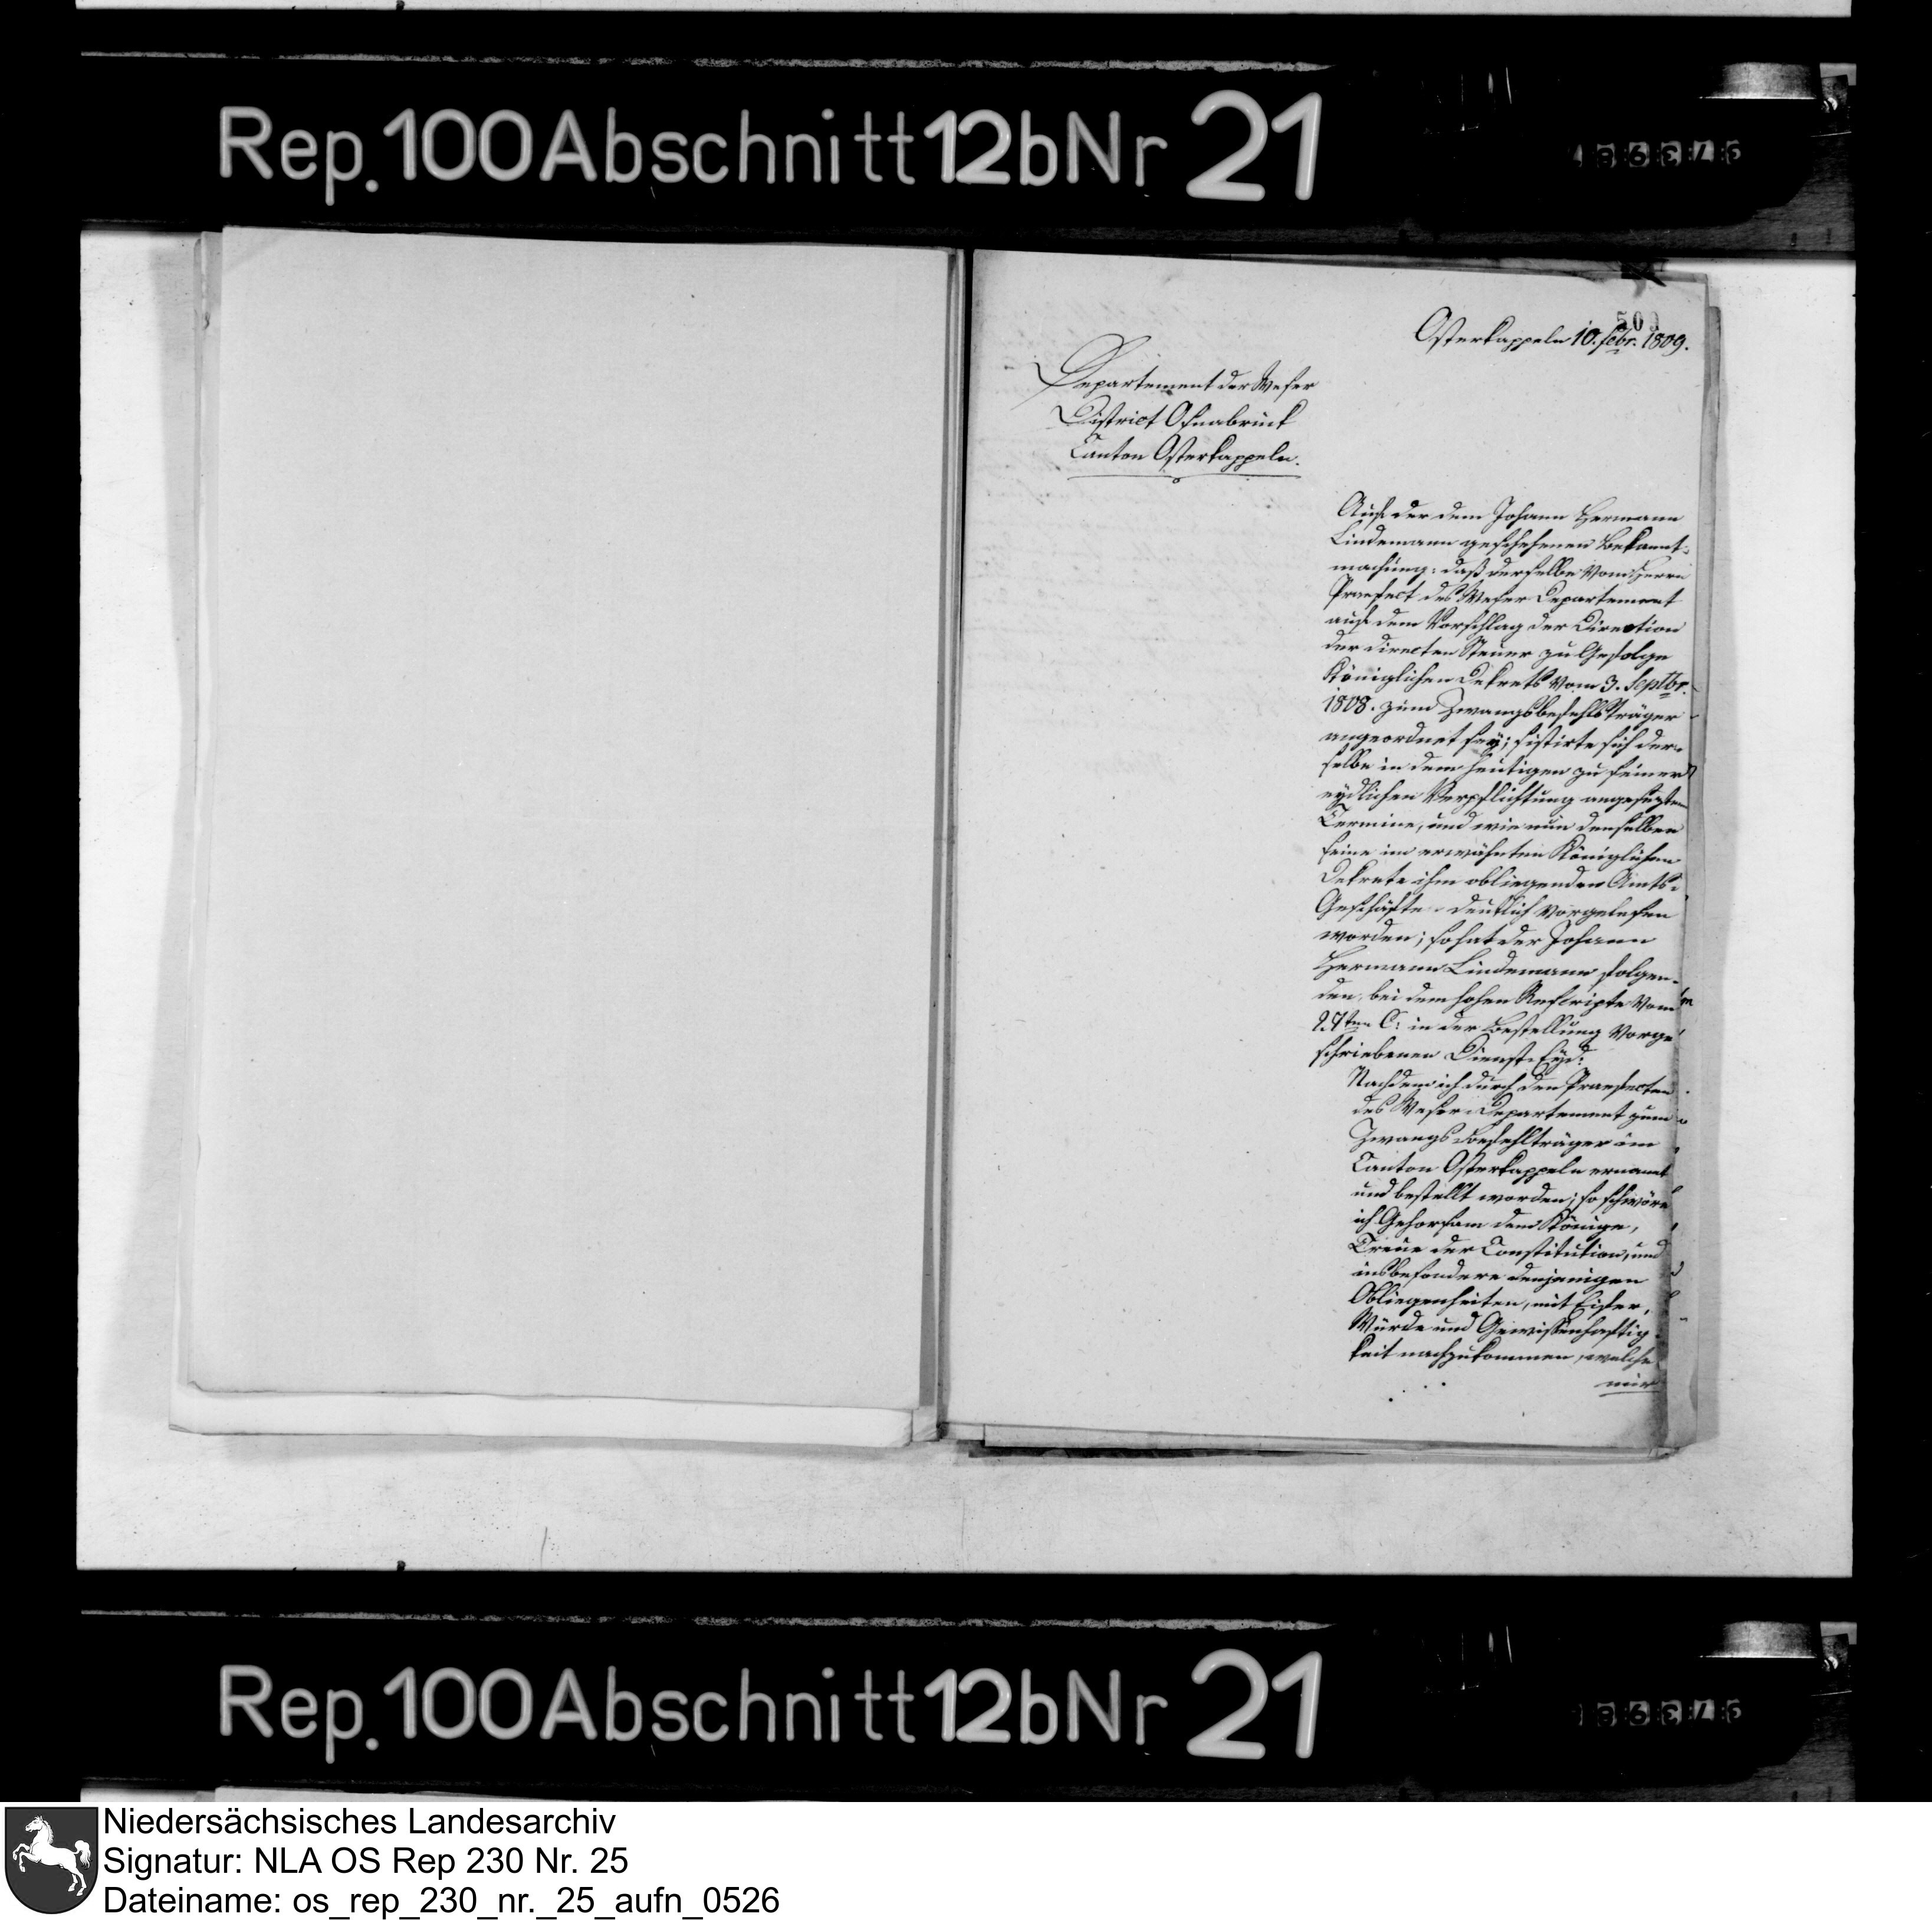 Rep. 100 Abschnitt 12b Nr 21
500
Osterkappeln 10. Febr. 1809.
Departement der Weser
District Osnabrück
Canton Osterkappeln.
Auf der dem Johann Hermann
Lindemann geschehenen Bekannt-
machung: daß derselbe vom Herrn
Praefect des Weser Departement
auf dem Vorschlag der Direction
der directen Steuer zu Gefolge
Königlichen Dekrets vom 3. Septbr.
1808. zum Zwangsbefehlsträger
angeordnet sey; sistirte sich der-
selbe in dem heutigen zu seiner
eydlichen Verpflichtung angesezten
Termine, und wie nun denselben
seine im erwähnten Königlichen
Dekrete ihm obliegenden Amts-
Geschäfte deutlich vorgelesen
worden; so hat der Johann
Hermann Lindemann folgen-
den, bei dem hohen Rescripte vom
27ten C: in der Bestellung vorge
schriebenen Dienst-Eyd:
Nachdem ich durch den Praefecten
des Weser-Departement zum
Zwangs-Befehlträger im
Canton Osterkappeln ernannt
und bestellt worden; so schwöre
ich Gehorsam dem Könige,
Treue der Constitution, und
insbesondere denjenigen
Obliegenheiten, mit Eifer,
Würde und Gewissenhaftig-
keit nachzukommen, welche
mir
Rep. 100 Abschnitt 12b Nr 21
Niedersächsisches Landesarchiv
Signatur: NLA OS Rep 230 Nr. 25
Dateiname: os_rep_230_nr._25_aufn_0526